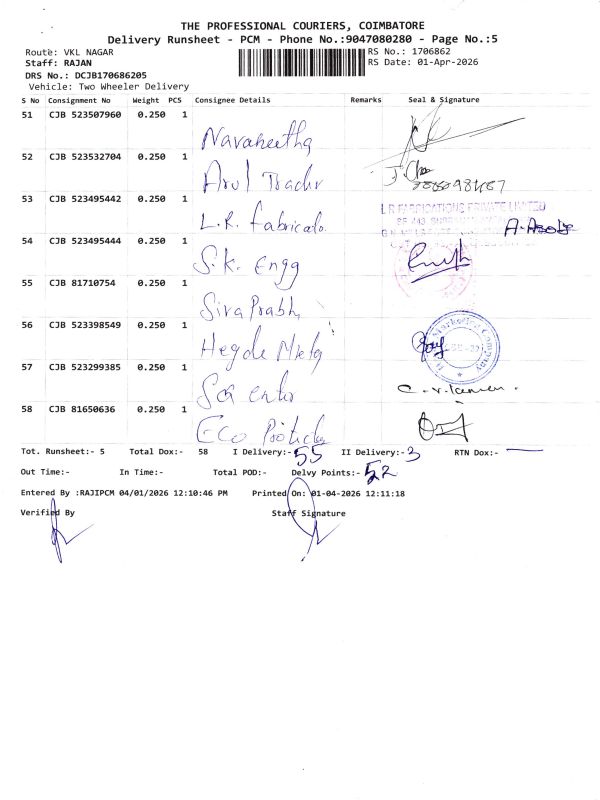 THE PROFESSIONAL COURIERS, COIMBATORE
Delivery Runsheet - PCM - Phone No.:9047080280 - Page No.:5
Route: VKL NAGAR
RS No.: 1706862
Staff: RAJAN
RS Date: 01-Apr-2026
DRS No.: DCJB170686205
Vehicle: Two Wheeler Delivery
S No Consignment No Weight PCS Consignee Details Remarks Seal & Signature
51 CJB 523507960 0.250 1 Navaneetha
52 CJB 523532704 0.250 1 Arul Tradr
53 CJB 523495442 0.250 1 L.R. fabricato.
L R FABRICATIONS PRIVATE LIMITED
54 CJB 523495444 0.250 1 S.K. Engg
55 CJB 81710754 0.250 1 Siva Prabh
56 CJB 523398549 0.250 1 Hegde
Marketing Company
57 CJB 523299385 0.250 1
58 CJB 81650636 0.250 1 Eco
Tot. Runsheet:- 5 Total Dox:- 58 I Delivery:- 55 II Delivery:- 3 RTN Dox:-
Out Time:- In Time:- Total POD:- Delvy Points:- 52
Entered By :RAJIPCM 04/01/2026 12:10:46 PM Printed On: 01-04-2026 12:11:18
Verified By Staff Signature